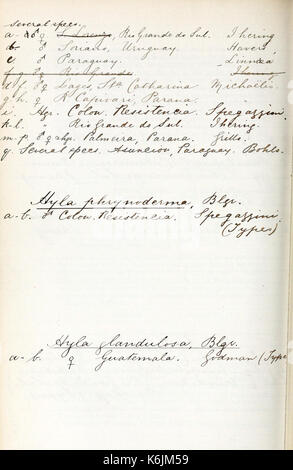 several specs.
a - ♂ ♀ S. Lorenzo, Rio Grande do Sul. Ihering
b. ♂ Soriano, Uruguay. Havers
c ♂ Paraguay. Linnæa
Rio Grande. Ihering
d, f. ♂ ♀ Lages, Sta Catharina Michaelis
g, h. ♀ R. Capivari, Parana.
i. Hgr. Colon. Resistencia. Spegazzini
k-l. Rio Grande do Sul. Ihering.
m-p. ♂ ♀ & hgr. Palmera, Parana. Grillo.
q Several specs. Asuncion, Paraguay. Bohls.
Hyla phrynoderma, Blgr.
a-b. ♂ Colon. Resistencia. Spegazzini
(Types)
Hyla glandulosa, Blgr.
a-b. ♀ Guatemala. Godman (Type
alamy
Image ID: K6JM59
www.alamy.com